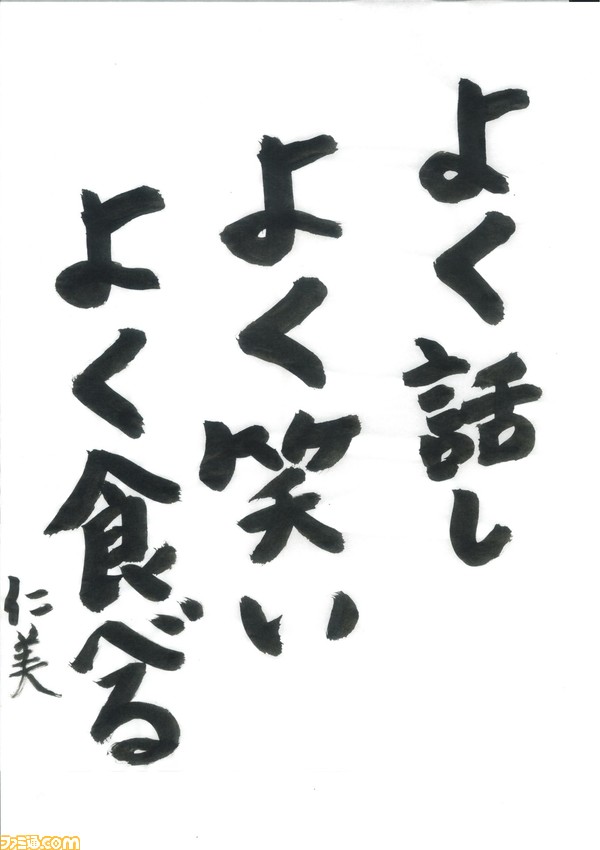 よく話し
よく笑い
よく食べる
仁美
ファミ通.com